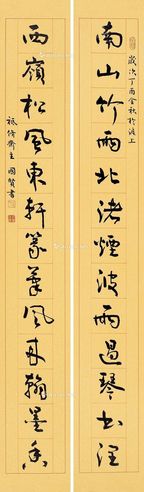 歲次丁酉金秋於
南山竹雨北渚煙波雨過琴書潤
西嶺松風東軒篆風來翰墨香
齋主國賢書